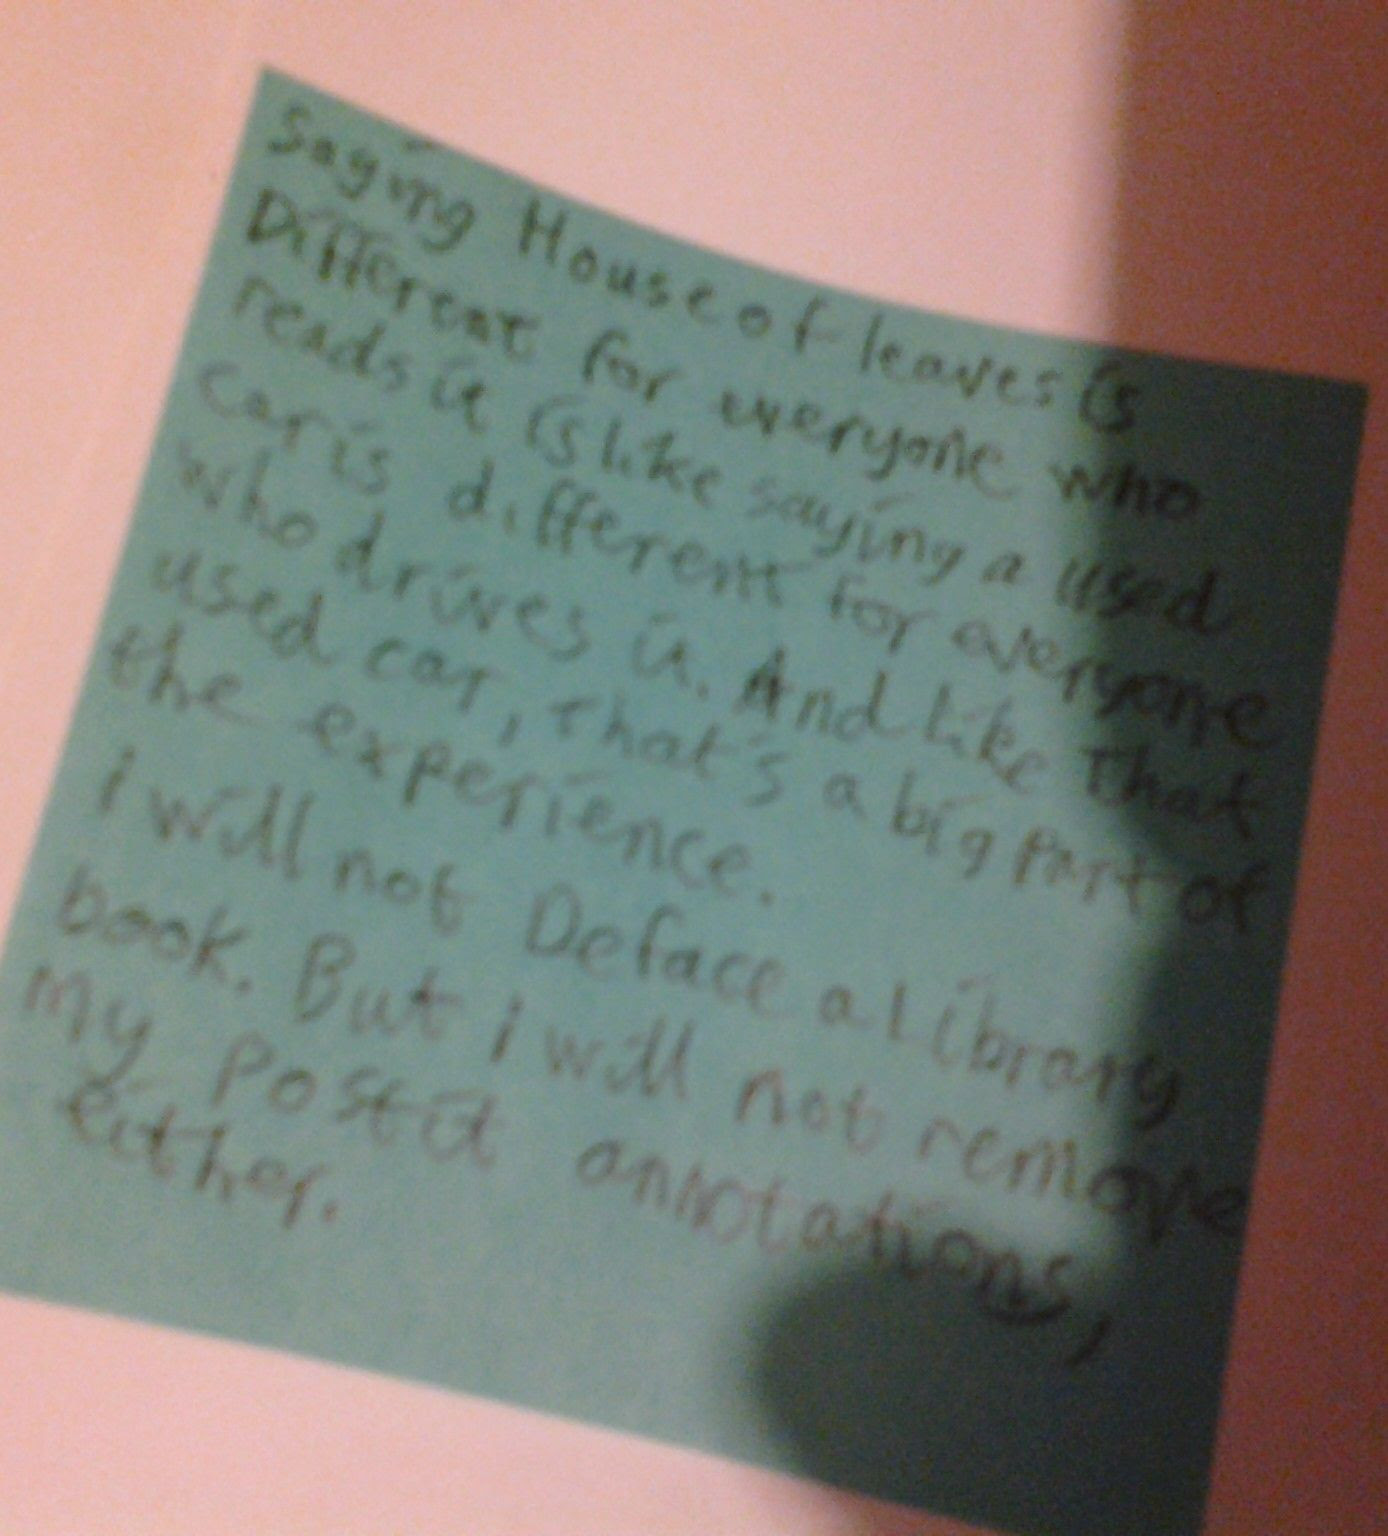 Saying House of leaves is
Different for everyone who
reads it is like saying a used
car is different for everyone
who drives it. And like that
used car, that's a big part of
the experience.
i will not Deface a library
book. But i will not remove
my postit annotations,
either.